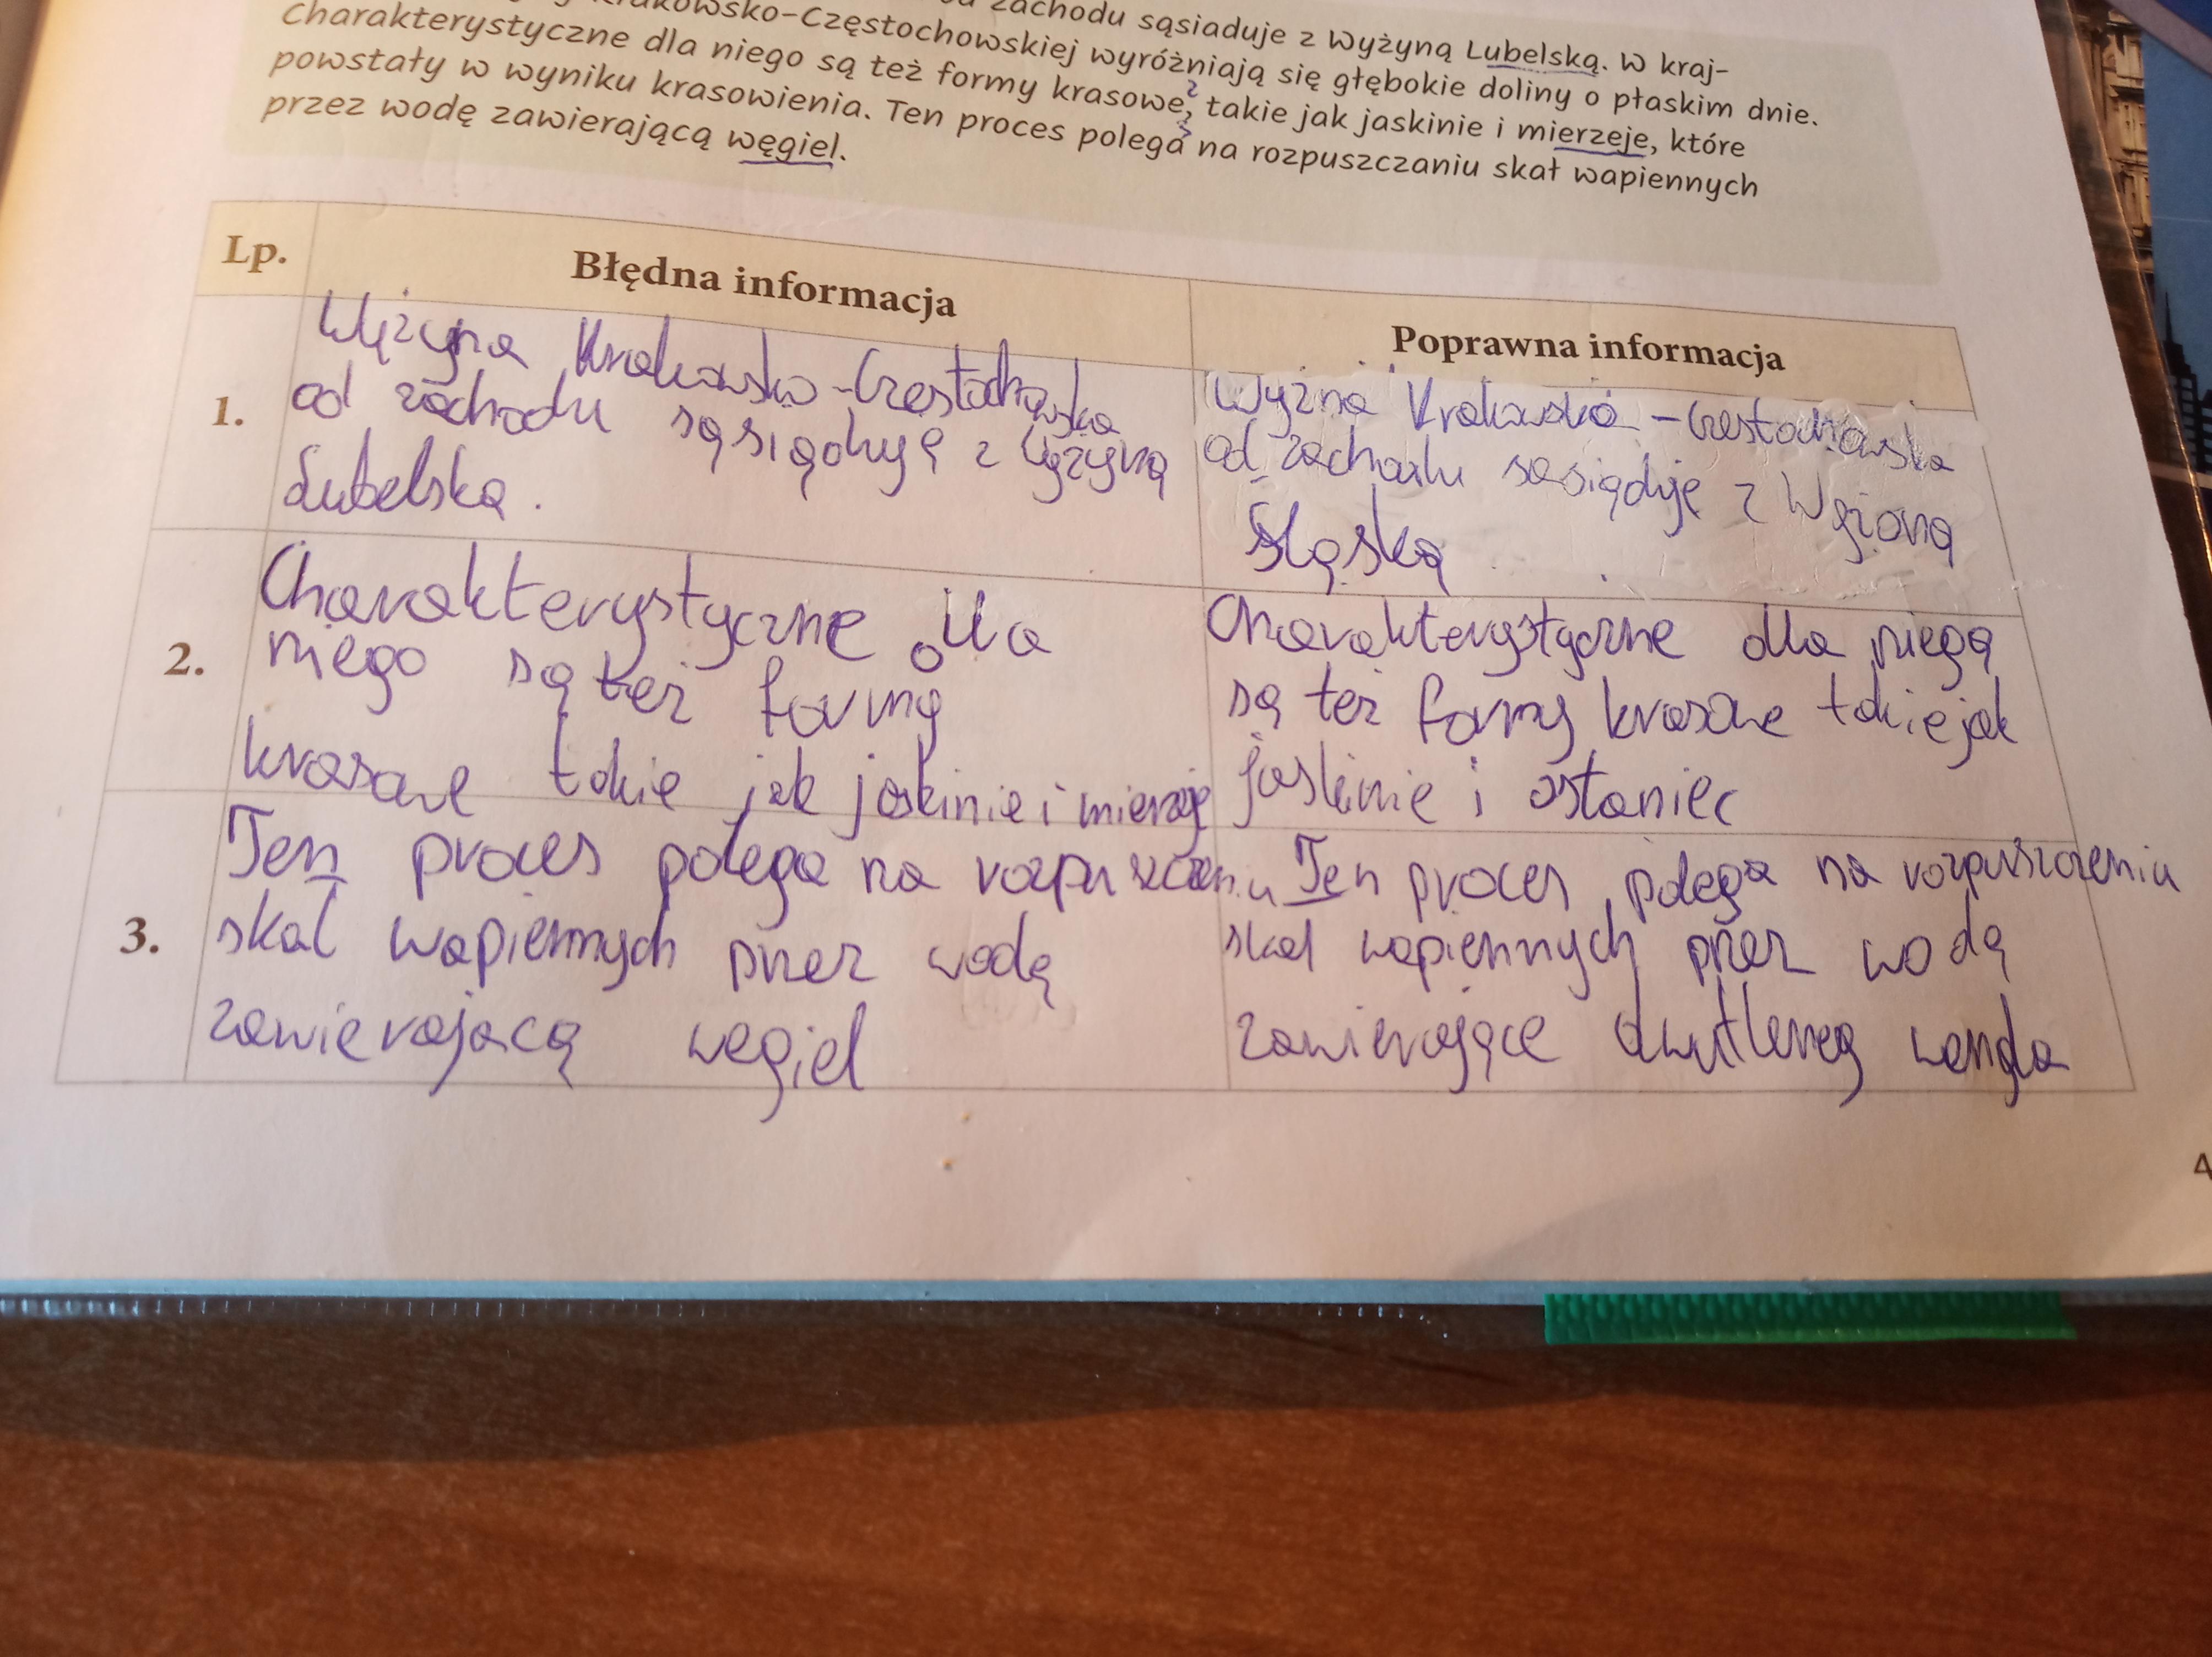 zachodu sąsiaduje z Wyżyną Lubelską. W kraj-
Krakowsko-Częstochowskiej wyróżniają się głębokie doliny o płaskim dnie.
Charakterystyczne dla niego są też formy krasowe, takie jak jaskinie i mierzeje, które
powstały w wyniku krasowienia. Ten proces polega na rozpuszczaniu skał wapiennych
przez wodę zawierającą węgiel.
Lp. Błędna informacja Poprawna informacja
1.
Wężyna Krakowsko-Częstochowska
od zachodu sąsiąduję z Wyżyną
Lubelską.
Wyżna Krakowsko-Częstochowska
od zachodu sąsiąduję z Wężoną
Śląską
2.
Charakterystyczne dla
niego są też formy
krasowe takie jak jaskinie i mierzeje
Charakterystyczne dla niego
są też formy krasowe takie jak
jaskinie i ostaniec
3.
Ten proces polega na rozpuszczeniu
skał wapiennych przez wodę
zawierającą węgiel
Ten proces polega na rozpuszczeniu
skał wapiennych przez wodą
zawierające dwutleneg wengla
4